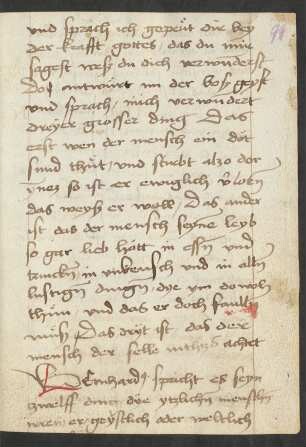 und sprach ich gepeüt dir bey
der krafft gottes, das du mir
sagest weß du dich verwünderst
Do antwürt im der böß geyst
und sprach, mich verwündert
dreyer grosser ding Das
erst wen der mensch ein döt
sünd thüt, und stirbt also dor
ynes so ist er ewiglich v̈lorn
das weyß er woll, Das ander
ist das der mensch seyne leyb
so gar lieb hott in essn und
trincken in unkeusch und in alln
lustign dingn, dye ym do woln
thün, und das er doch faulln
müß Das dryt ist das der
mensch der selle nithß achtet
BErnhardꝰ spricht es seyn
zwelff ding dye ytzlichn menschn
er geystlich oder weltlich